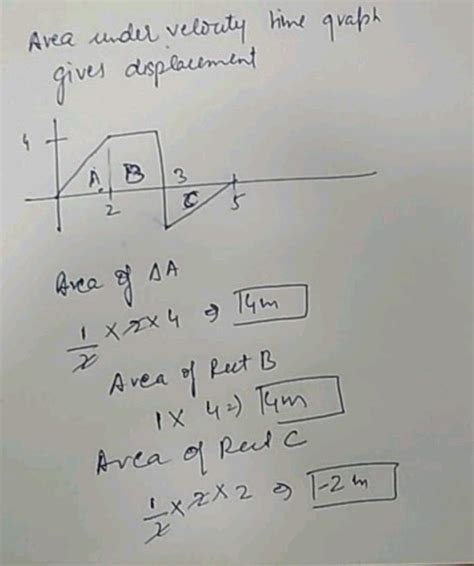 Area under velocity time graph
gives displacement
4
A. B 3
C
2 5
Area of ΔA
1/2 × 2 × 4 ⇒ 4m
Area of Rect B
1 × 4 ⇒ 4m
Area of Rect C
1/2 × 2 × 2 ⇒ -2m